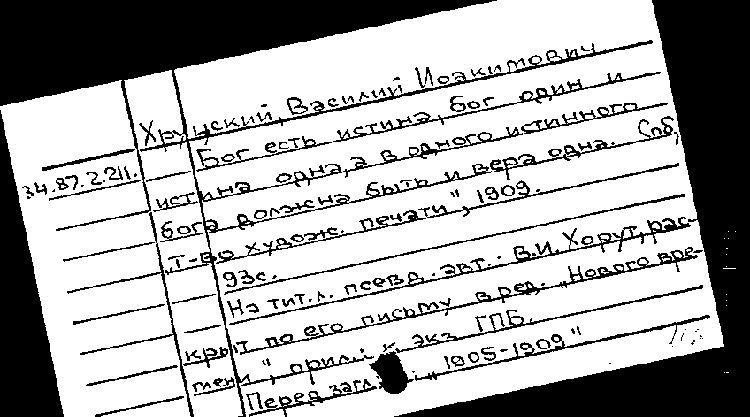 Хруцкий, Василий Иоакимович
34.87.2.211.
Бог есть истина, бог один и
истина одна, а в одного истинного
бога должна быть и вера одна. Спб,
"Т-во худож. печати", 1909.
93с.
На тит.л. псевд. авт.: В.И. Хорут, рас-
крыт по его письму в ред. "Нового вре-
мени", прил.: к экз ГПБ.
Перед загл.: "1905-1909"